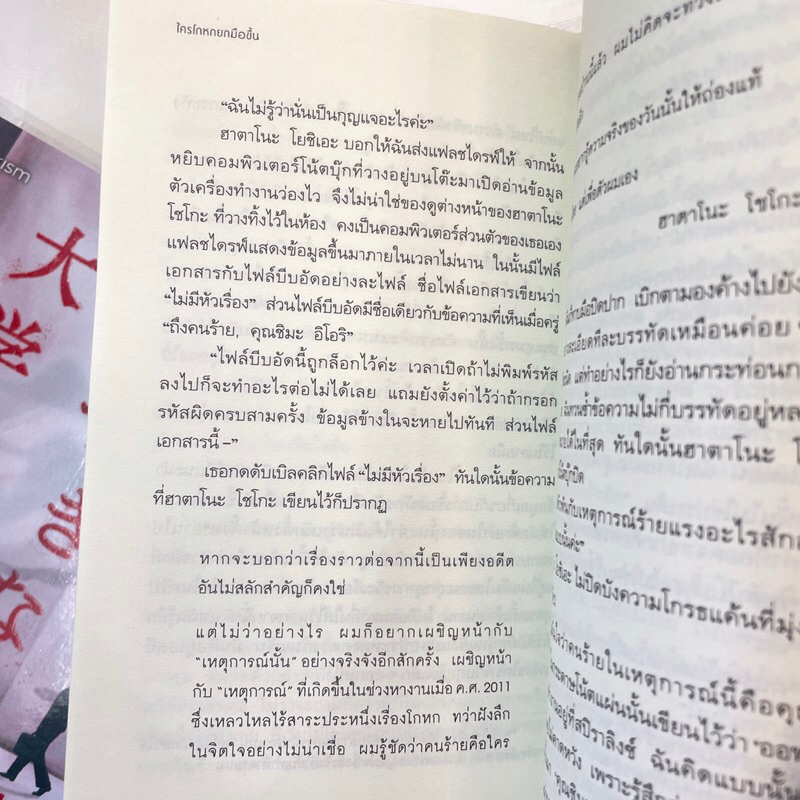 ใครโกหกยกมือขึ้น
“ฉันไม่รู้ว่านั่นเป็นกุญแจอะไรค่ะ”
ฮาตาโนะ โยชิเอะ บอกให้ฉันส่งแฟลชไดรฟ์ให้ จากนั้น
หยิบคอมพิวเตอร์โน้ตบุ๊กที่วางอยู่บนโต๊ะมาเปิดอ่านข้อมูล
ตัวเครื่องทำงานว่องไว จึงไม่น่าใช่ของดูต่างหน้าของฮาตาโนะ
โชโกะ ที่วางทิ้งไว้ในห้อง คงเป็นคอมพิวเตอร์ส่วนตัวของเธอเอง
แฟลชไดรฟ์แสดงข้อมูลขึ้นมาภายในเวลาไม่นาน ในนั้นมีไฟล์
เอกสารกับไฟล์บีบอัดอย่างละไฟล์ ชื่อไฟล์เอกสารเขียนว่า
“ไม่มีหัวเรื่อง” ส่วนไฟล์บีบอัดมีชื่อเดียวกับข้อความที่เห็นเมื่อครู่
“ถึงคนร้าย, คุณชิมะ อิโอริ”
“ไฟล์บีบอัดนี้ถูกล็อกไว้ค่ะ เวลาเปิดถ้าไม่พิมพ์รหัส
ลงไปก็จะทำอะไรต่อไม่ได้เลย แถมยังตั้งค่าไว้ว่าถ้ากรอก
รหัสผิดครบสามครั้ง ข้อมูลข้างในจะหายไปทันที ส่วนไฟล์
เอกสารนี้ –”
เธอกดดับเบิลคลิกไฟล์ “ไม่มีหัวเรื่อง” ทันใดนั้นข้อความ
ที่ฮาตาโนะ โชโกะ เขียนไว้ก็ปรากฏ
หากจะบอกว่าเรื่องราวต่อจากนี้เป็นเพียงอดีต
อันไม่สลักสำคัญก็คงใช่
แต่ไม่ว่าอย่างไร ผมก็อยากเผชิญหน้ากับ
“เหตุการณ์นั้น” อย่างจริงจังอีกสักครั้ง เผชิญหน้า
กับ “เหตุการณ์” ที่เกิดขึ้นในช่วงหางานเมื่อ ค.ศ. 2011
ซึ่งเหลวไหลไร้สาระประหนึ่งเรื่องโกหก ทว่าฝังลึก
ในจิตใจอย่างไม่น่าเชื่อ ผมรู้ชัดว่าคนร้ายคือใคร
ผมไม่คิดจะทวง
ความจริงของวันนั้นให้ถ่องแท้
ฮาตาโนะ โชโกะ
มือปิดปาก เบิกตามองค้างไปยัง
ทีละบรรทัดเหมือนค่อย
แต่ทำอย่างไรก็ยังอ่านกระท่อนก
ข้อความไม่กี่บรรทัดอยู่หล
ได้ในที่สุด ทันใดนั้นฮาตาโนะ
กับเหตุการณ์ร้ายแรงอะไรสัก
ไม่ปิดบังความโกรธแค้นที่มุ่ง
ว่าคนร้ายในเหตุการณ์นี้คือคุ
โน้ตแผ่นนั้นเขียนไว้ว่า
อยู่ที่สปิราลิงซ์ ฉันคิดแบบนั้น
เพราะรู้สึก
大
学